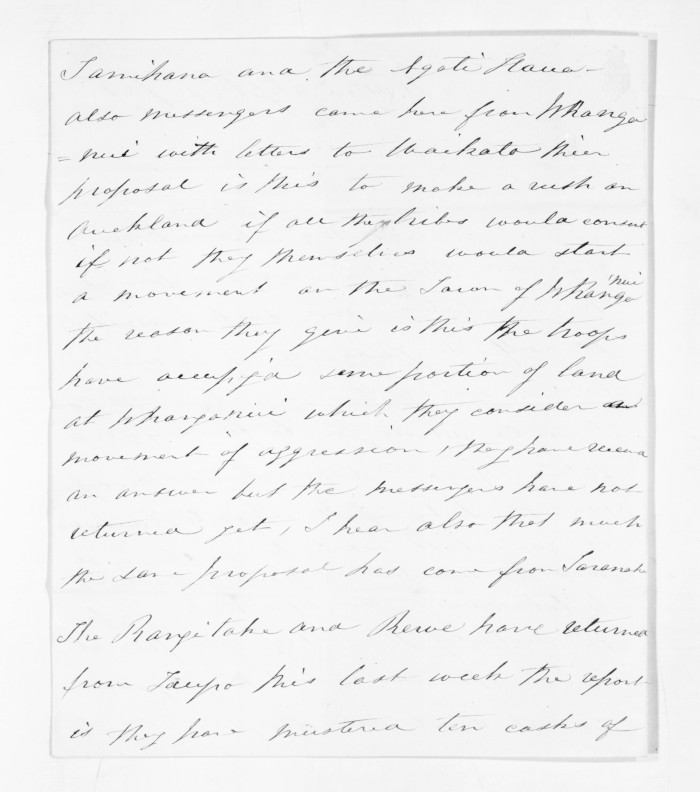 Tamihana and the Ngati Haua -
also messengers came here from Whanga
=nui with letters to Waikato thier
proposal is this to make a rush on
Auckland if all the tribes would consent
if not they themselves would start
a movement on the Town of Whanga nui
the reason they give is this the troops
have occupyd some portion of land
at Whanganui which they consider an
movement of aggression, they have
an answer but the messengers have not
returned yet, I hear also that much
the same proposal has come from Taranaki
The Rangitake and Rewe have returned
from Taupo this last week the report
is they have mustered ten casks of